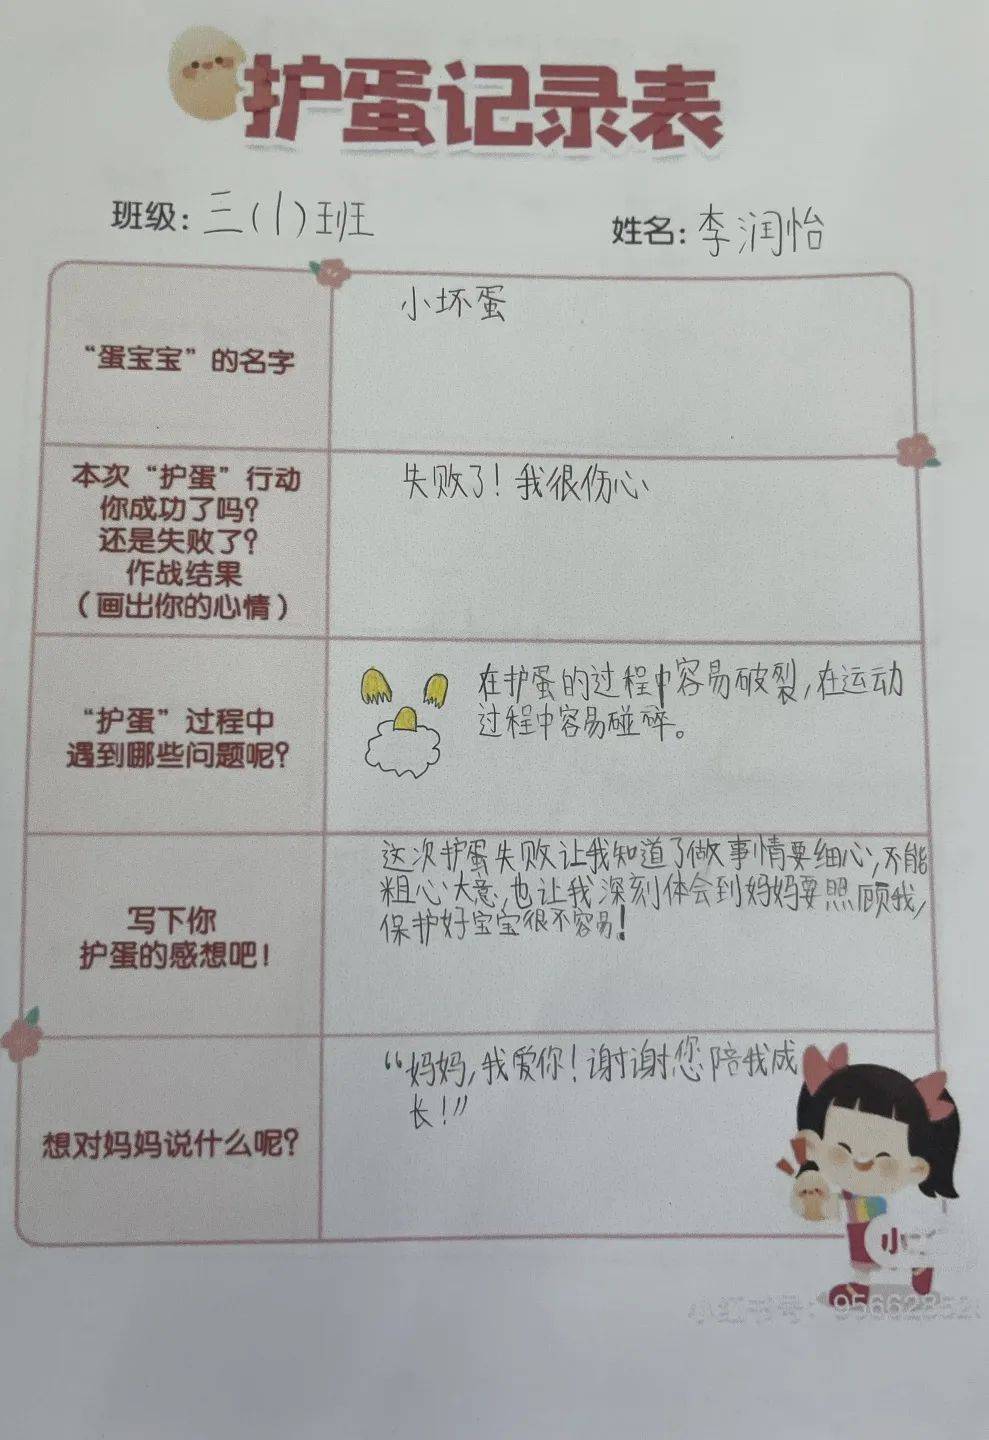 护蛋记录表
班级：三（1）班
姓名：李润怡
“蛋宝宝”的名字
小坏蛋
本次“护蛋”行动
你成功了吗？
还是失败了？
作战结果
（画出你的心情）
失败了！我很伤心
“护蛋”过程中
遇到哪些问题呢？
在护蛋的过程中容易破裂，在运动
过程中容易碰碎。
写下你
护蛋的感想吧！
这次护蛋失败让我知道了做事情要细心，不能
粗心大意，也让我深刻体会到妈妈要照顾我，
保护好宝宝很不容易！
想对妈妈说什么呢？
“妈妈，我爱你！谢谢您陪我成
长！”
小
小红书号：95662852